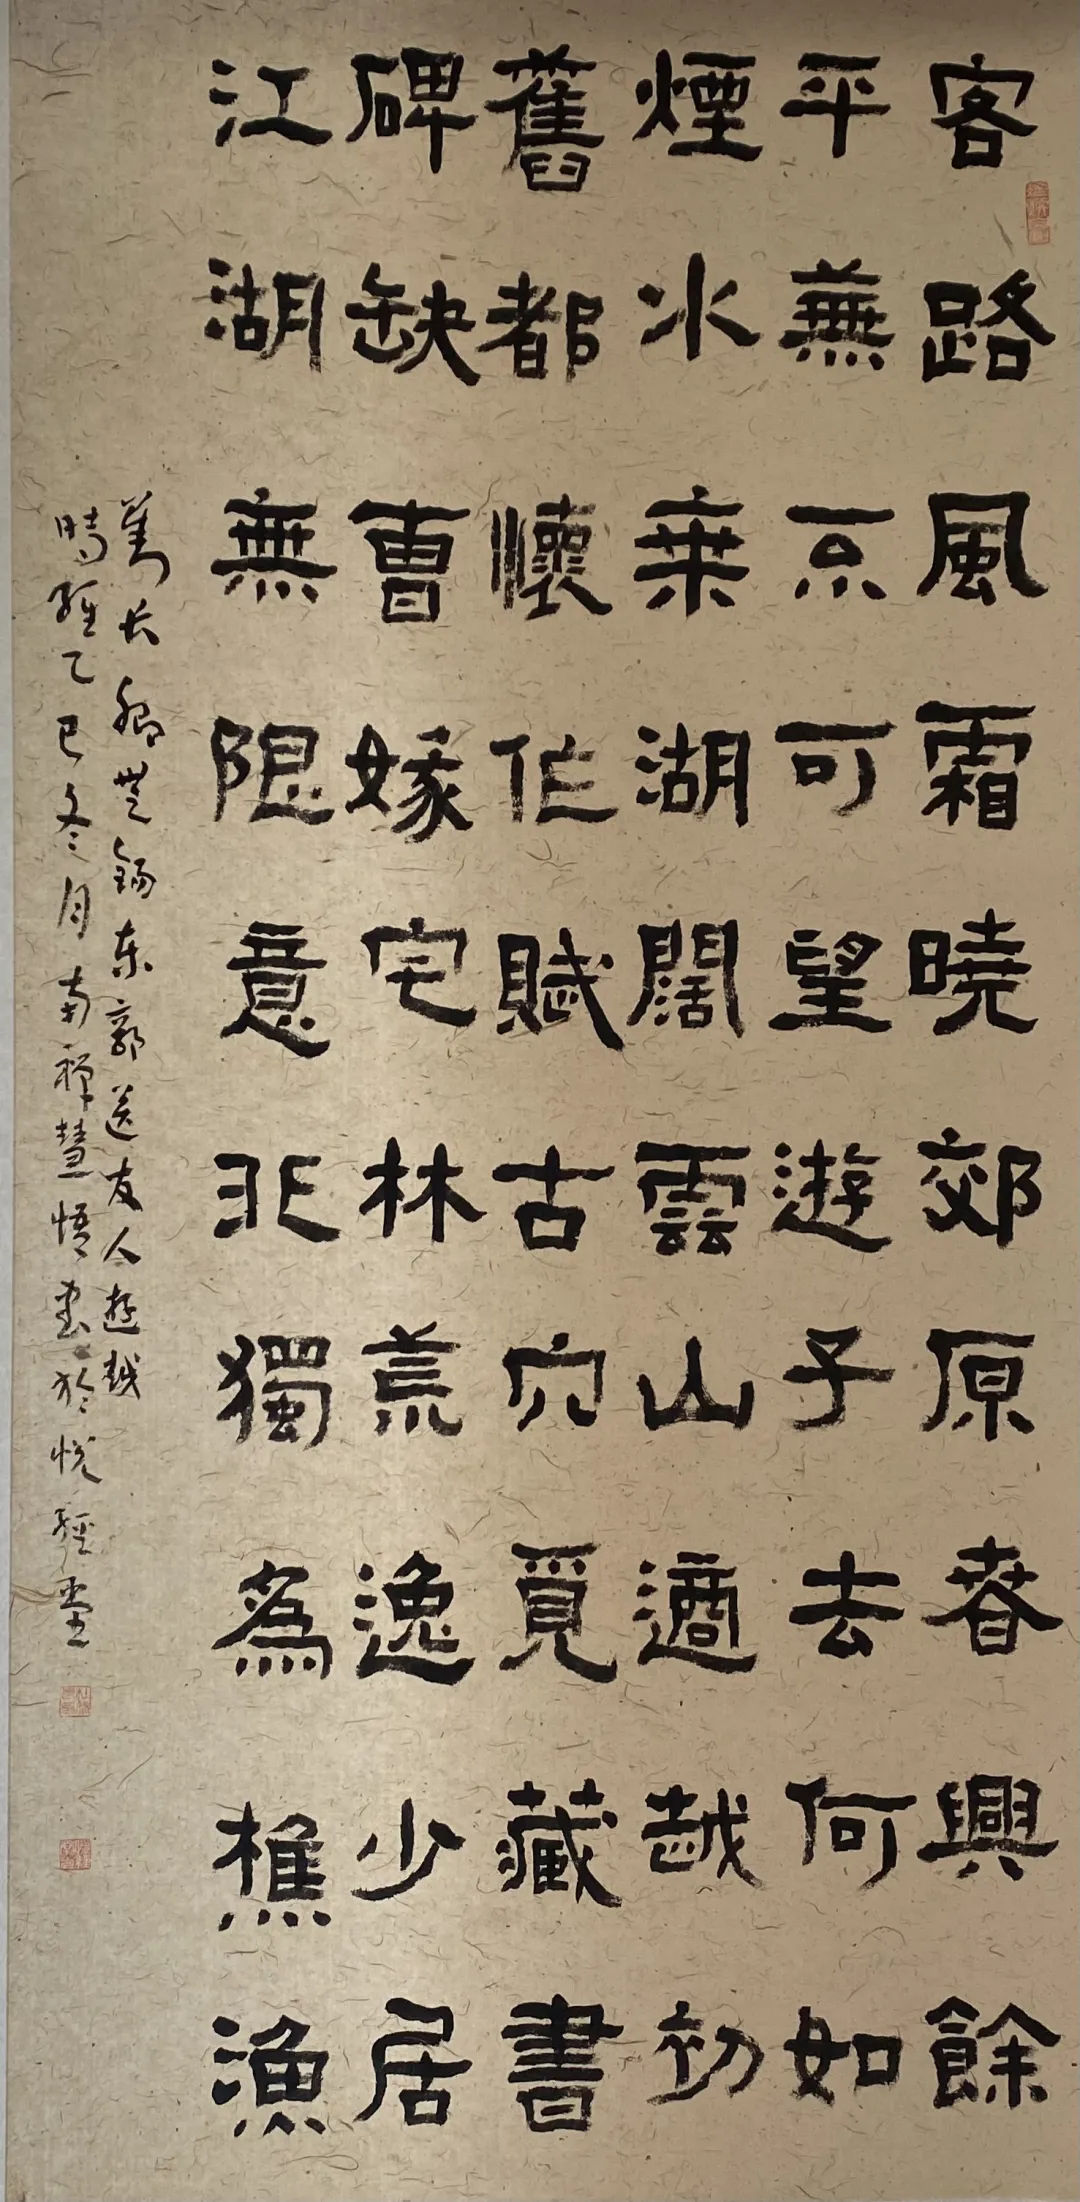 客路風霜曉郊原春興餘
平蕪不可望遊子去何如
煙水乗湖闊雲山適越初
舊都懷作賦古穴覓藏書
碑缺曹娥宅林荒逸少居
江湖無限意非獨為樵漁
劉长卿無錫东郭送友人遊越
時維乙巳冬月南禪慧悟書於悅經堂